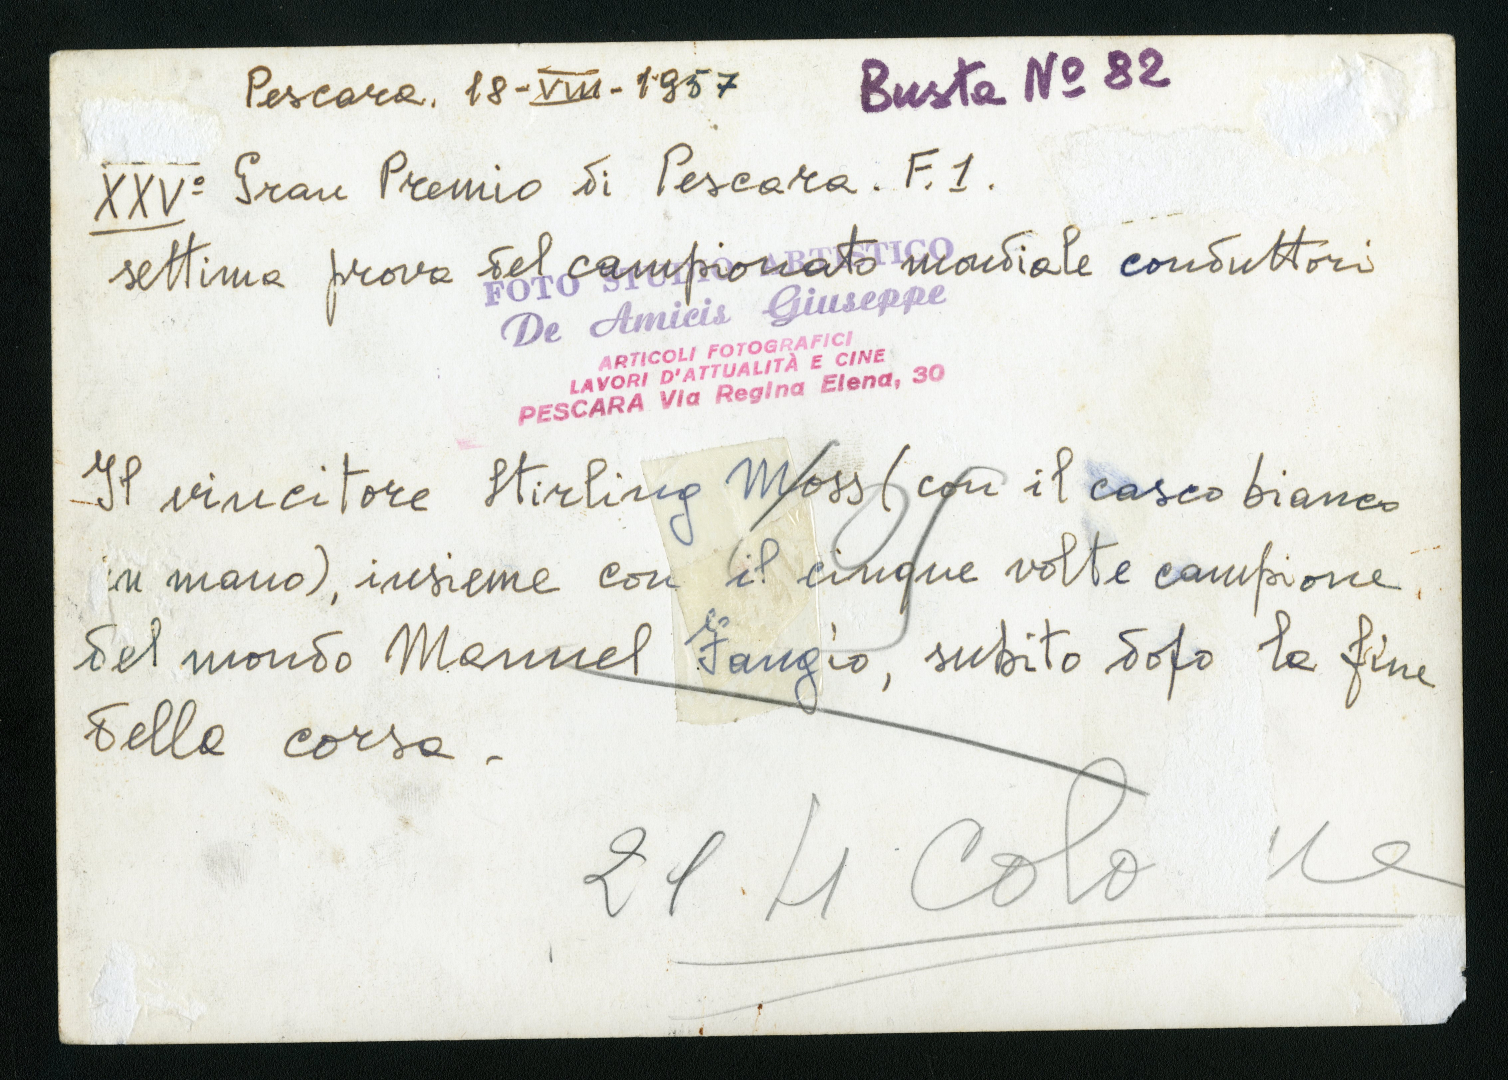 Pescara. 18-VIII-1957
Busta Nº 82
XXVº Gran Premio di Pescara. F.1.
settima prova del campionato mondiale conduttori
FOTO STUDIO ARTISTICO
De Amicis Giuseppe
ARTICOLI FOTOGRAFICI
LAVORI D'ATTUALITÀ E CINE
PESCARA Via Regina Elena, 30
Il vincitore Stirling Moss (con il casco bianco
in mano), insieme con il cinque volte campione
del mondo Manuel Fangio, subito dopo la fine
della corsa.
4 Colo ne